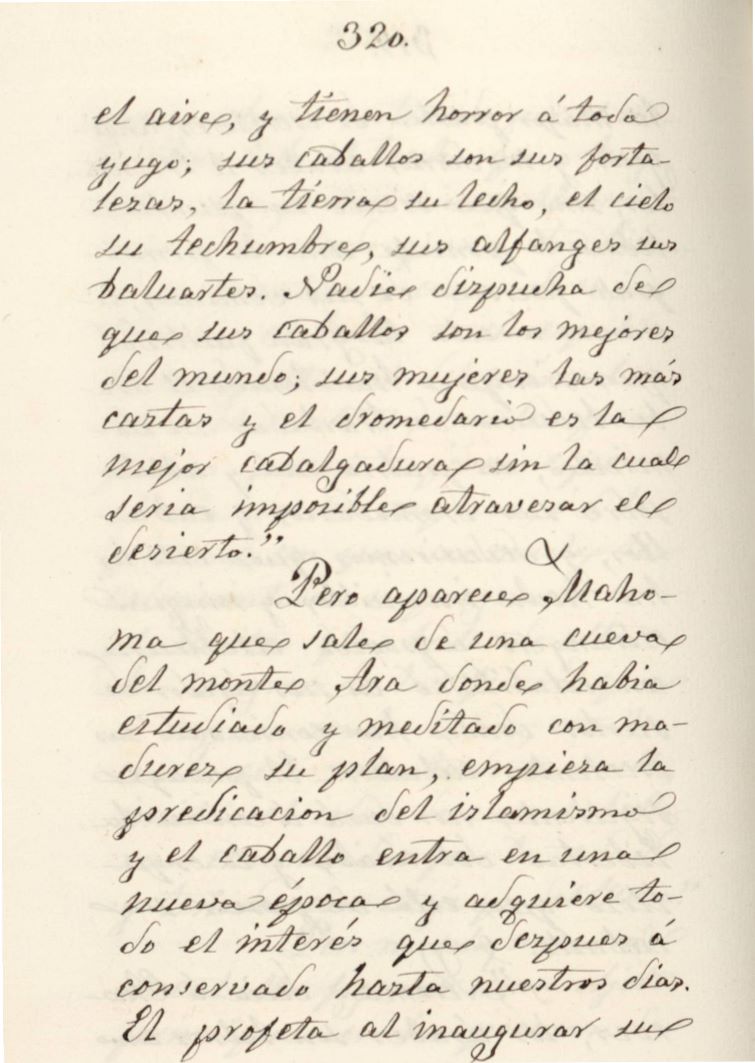 320.
el aire, y tienen horror á todo
yugo; sus caballos son sus forta-
lezas, la tierra su lecho, el cielo
su techumbre, sus alfanges sus
baluartes. Nadie dizpucha de
que sus caballos son los mejores
del mundo; sus mujeres las más
caztas y el dromedario es la
mejor cabalgadura sin la cual
seria imposible atravezar el
desierto."
Pero aparece Maho-
ma que sale de una cueva
del monte Ara donde habia
estudiado y meditado con ma-
durez su plan, empieza la
predicacion del izlamismo
y el caballo entra en una
nueva época y adquiere to-
do el interés que dezpues á
conservado hazta nuestros dias.
El profeta al inaugurar su